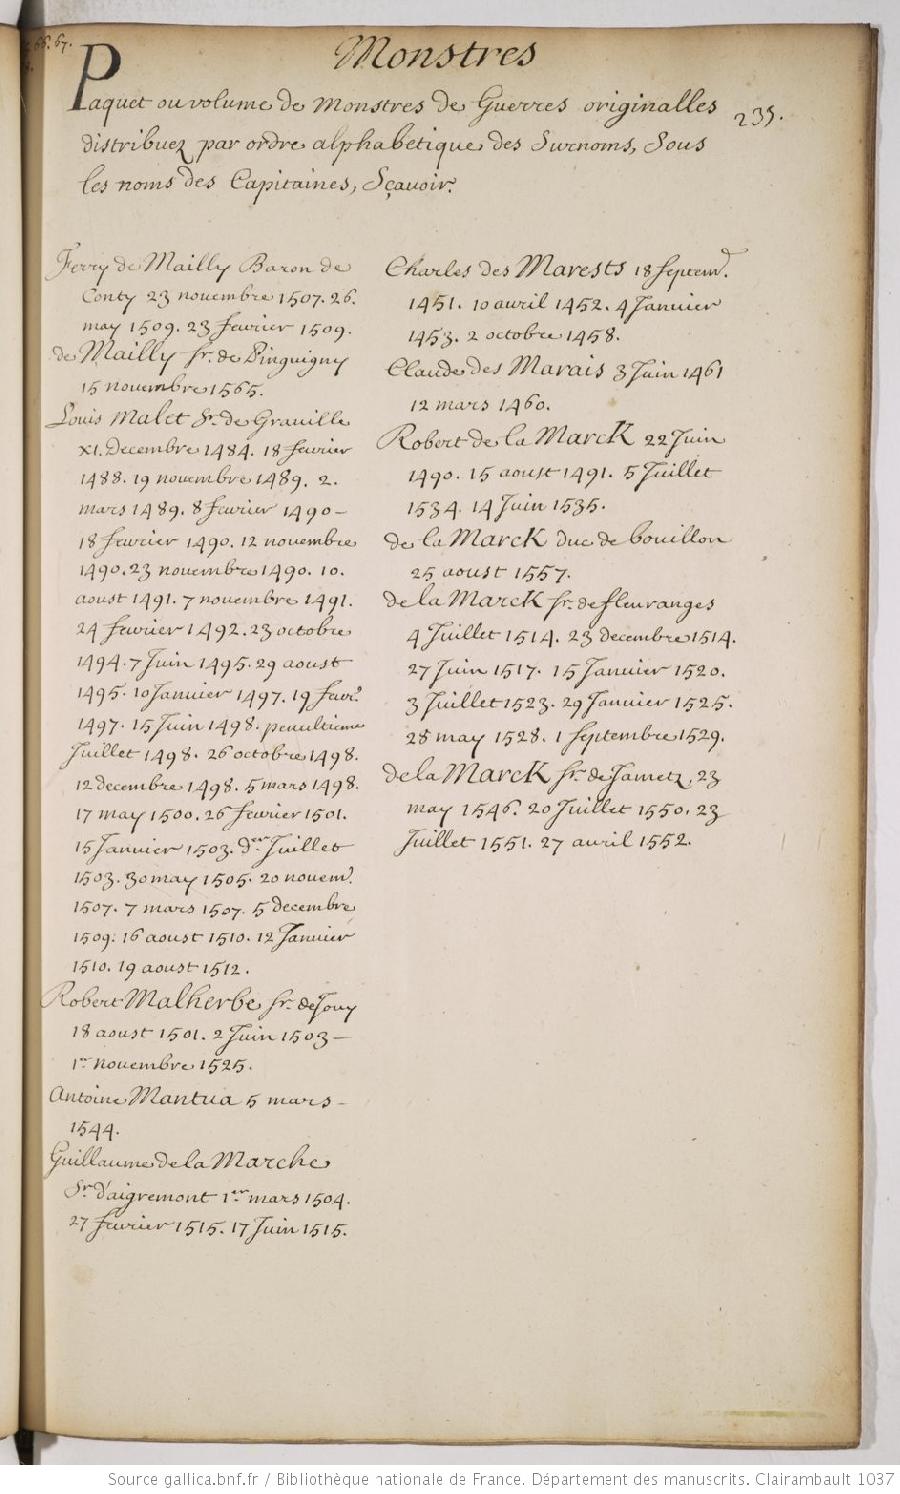 66. 67.
Monstres
235.
Paquet ou volume de Monstres de Guerres originalles
distribuez par ordre alphabetique des Surnoms, Sous
les noms des Capitaines, Sçavoir.
Ferry de Mailly Baron de
Conty 23 novembre 1507. 26.
may 1509. 23 fevrier 1509.
de Mailly sr. de Pinguigny
15 novembre 1565.
Louis Malet Sr. de Graville
XI. Decembre 1484. 18 fevrier
1488. 19 novembre 1489. 2.
mars 1489. 8 fevrier 1490 —
18 fevrier 1490. 12 novembre
1490. 23 novembre 1490. 10.
aoust 1491. 7 novembre 1491.
24 fevrier 1492. 23 octobre
1494. 7 Juin 1495. 29 aoust
1495. 10 Janvier 1497. 19 fevr.
1497. 15 Juin 1498. penultieme
Juillet 1498. 26 octobre 1498.
12 decembre 1498. 5 mars 1498.
17 may 1500. 26 fevrier 1501.
15 Janvier 1503. der. Juillet
1503. 30 may 1505. 20 novem.
1507. 7 mars 1507. 5 decembre
1509. 16 aoust 1510. 12 Janvier
1510. 19 aoust 1512.
Robert Malherbe sr. de Jouy
18 aoust 1501. 2 Juin 1503 —
1er. novembre 1525.
Antoine Mantua 5 mars —
1544.
Guillaume de la Marche
Sr. d'aigremont 1er. mars 1504.
27 fevrier 1515. 17 Juin 1515.
Charles des Marests 18 septem.
1451. 10 avril 1452. 4 Janvier
1453. 2 octobre 1458.
Claude des Marais 3 Juin 1461
12 mars 1460.
Robert de la Marck 22 Juin
1490. 15 aoust 1491. 5 Juillet
1534. 14 Juin 1535.
de la Marck duc de bouillon
25 aoust 1557.
de la Marck sr. de fleuranges
4 Juillet 1514. 23 decembre 1514.
27 Juin 1517. 15 Janvier 1520.
3 Juillet 1523. 29 Janvier 1525.
28 may 1528. 1 septembre 1529.
de la Marck sr. de Jametz. 23
may 1546. 20 Juillet 1550. 23
Juillet 1551. 27 avril 1552.
Source gallica.bnf.fr / Bibliothèque nationale de France. Département des manuscrits. Clairambault 1037